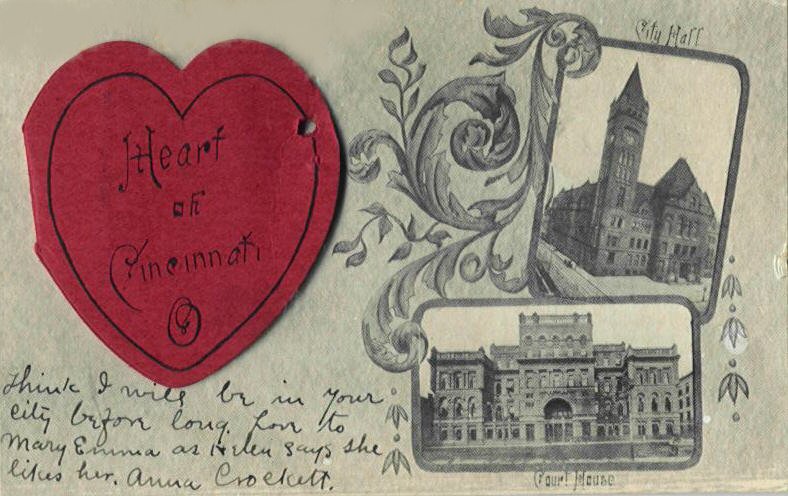 Heart
of
Cincinnati
City Hall
Court House
Think I will be in your
city before long. Love to
Mary Emma as Helen says she
likes her. Anna Crockett.